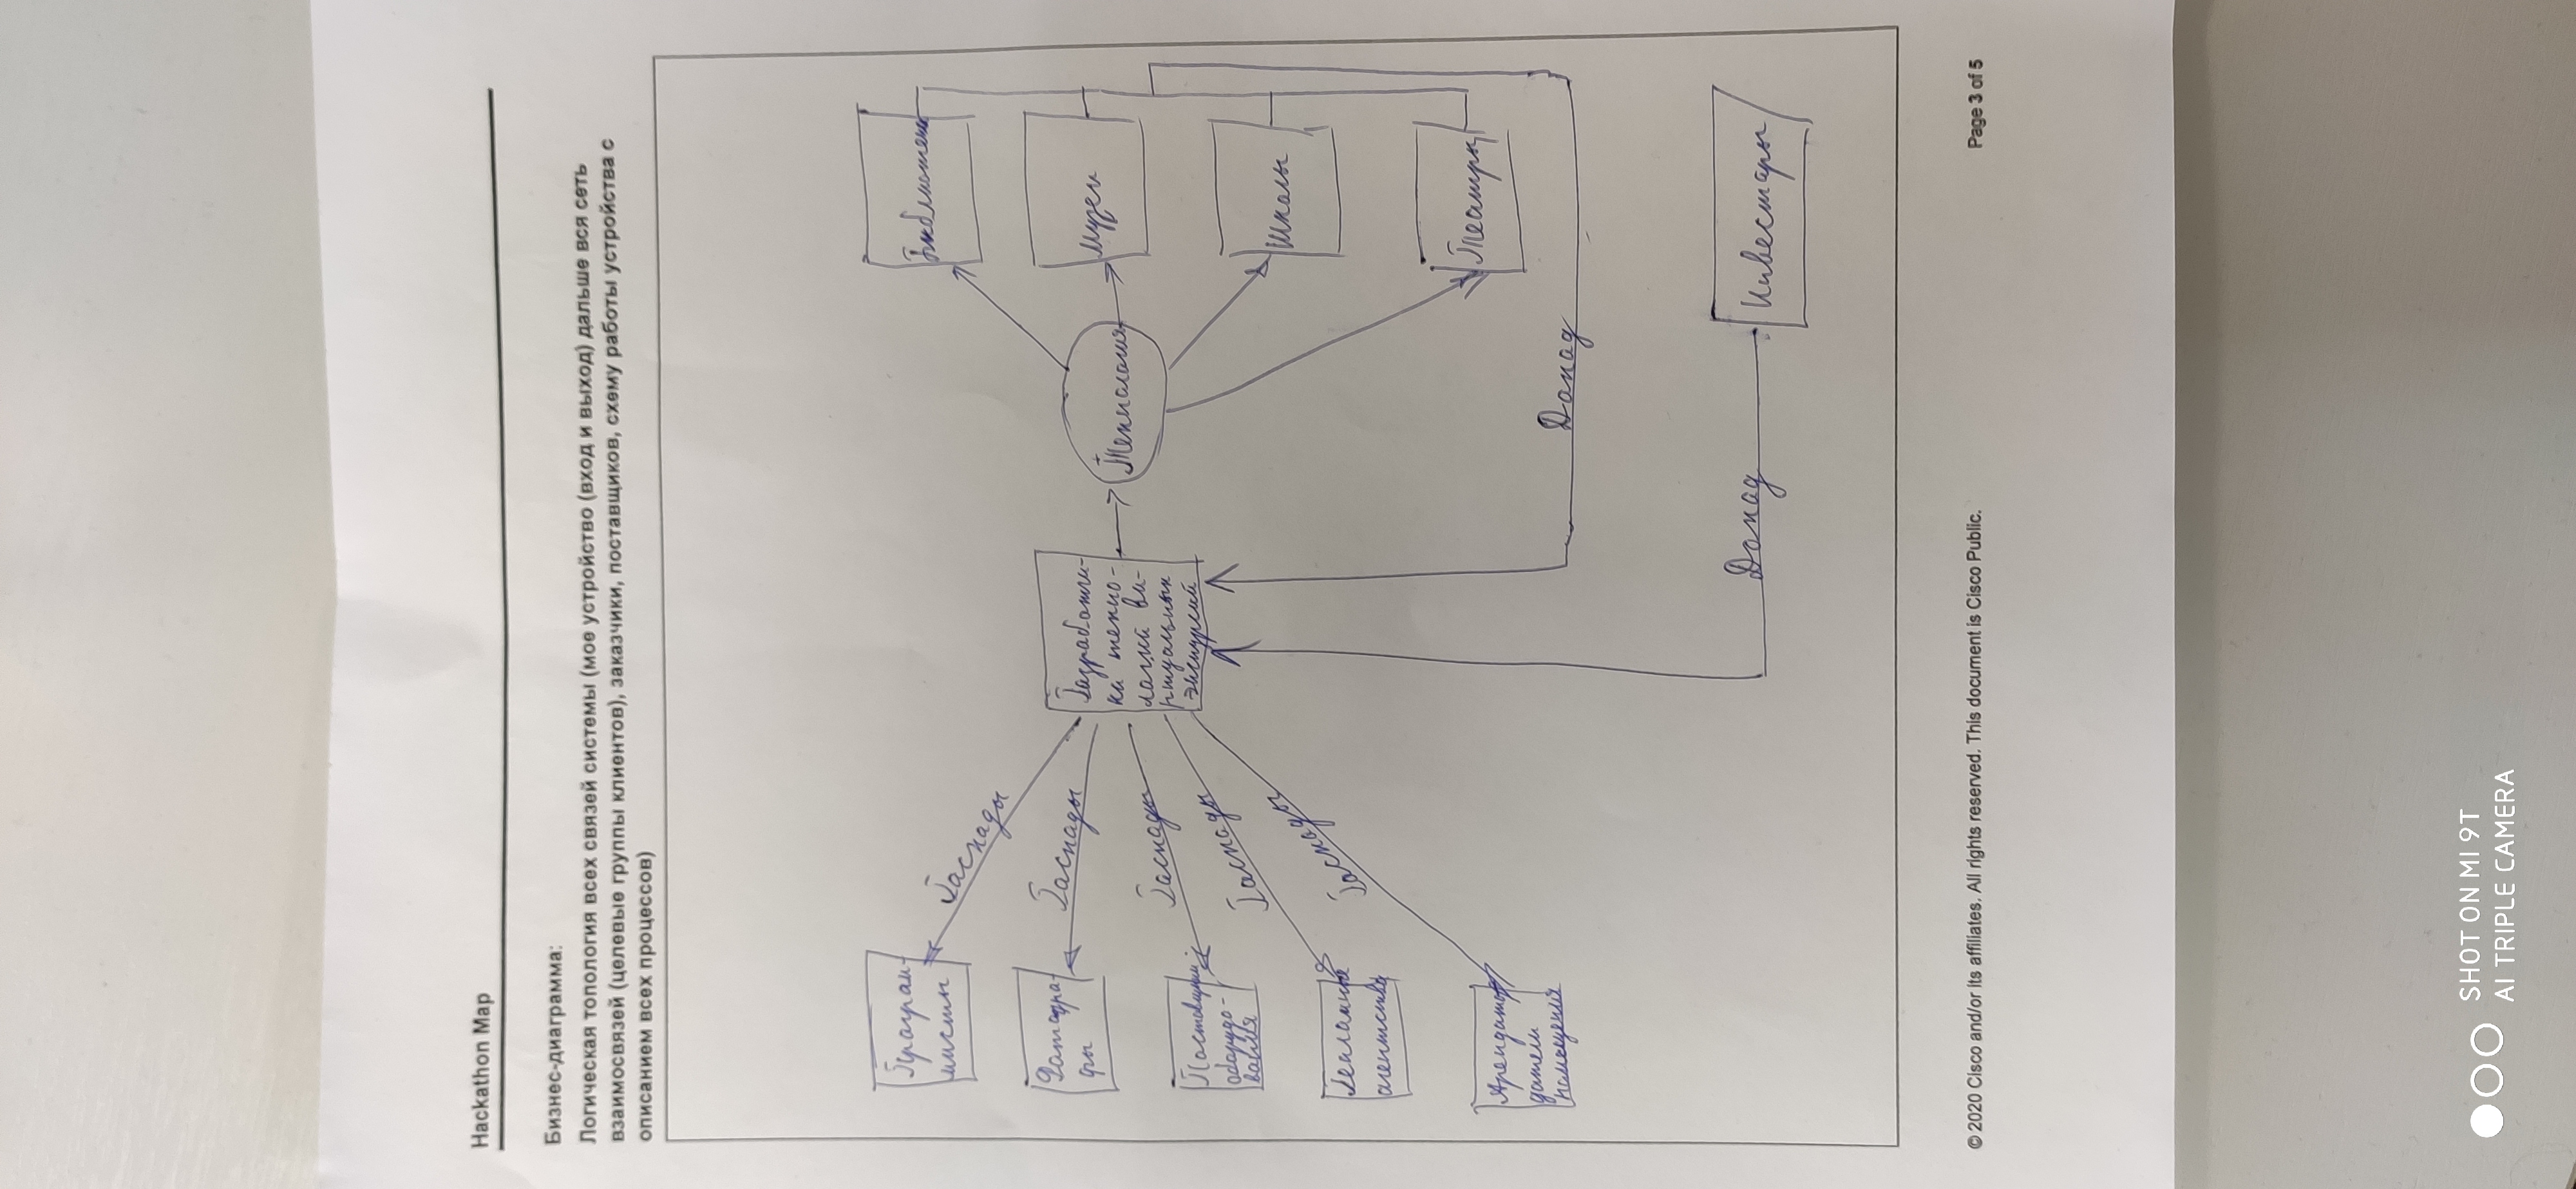 Hackathon Map
Бизнес-диаграмма:
Логическая топология всех связей системы (мое устройство (вход и выход) дальше вся сеть
взаимосвязей (целевые группы клиентов), заказчики, поставщиков, схему работы устройства с
описанием всех процессов)
Програм-
мисты
Расходы
Фотогра-
фы
Расходы
Поставщики
оборудо-
вания
Расходы
Рекламные
агентства
Расходы
Арендато
датели
помещения
Расходы
Разработчи-
ки техно-
логий ви-
ртуальных
экскурсий
Технология
Библиотеки
Музеи
Школы
Театры
Доход
Доход
Инвесторы
© 2020 Cisco and/or its affiliates. All rights reserved. This document is Cisco Public.
Page 3 of 5
SHOT ON MI 9T
AI TRIPLE CAMERA